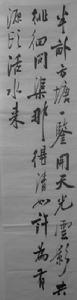 半畝方塘一鑒開天光雲影共
徘徊問渠那得清如許為有
源頭活水来